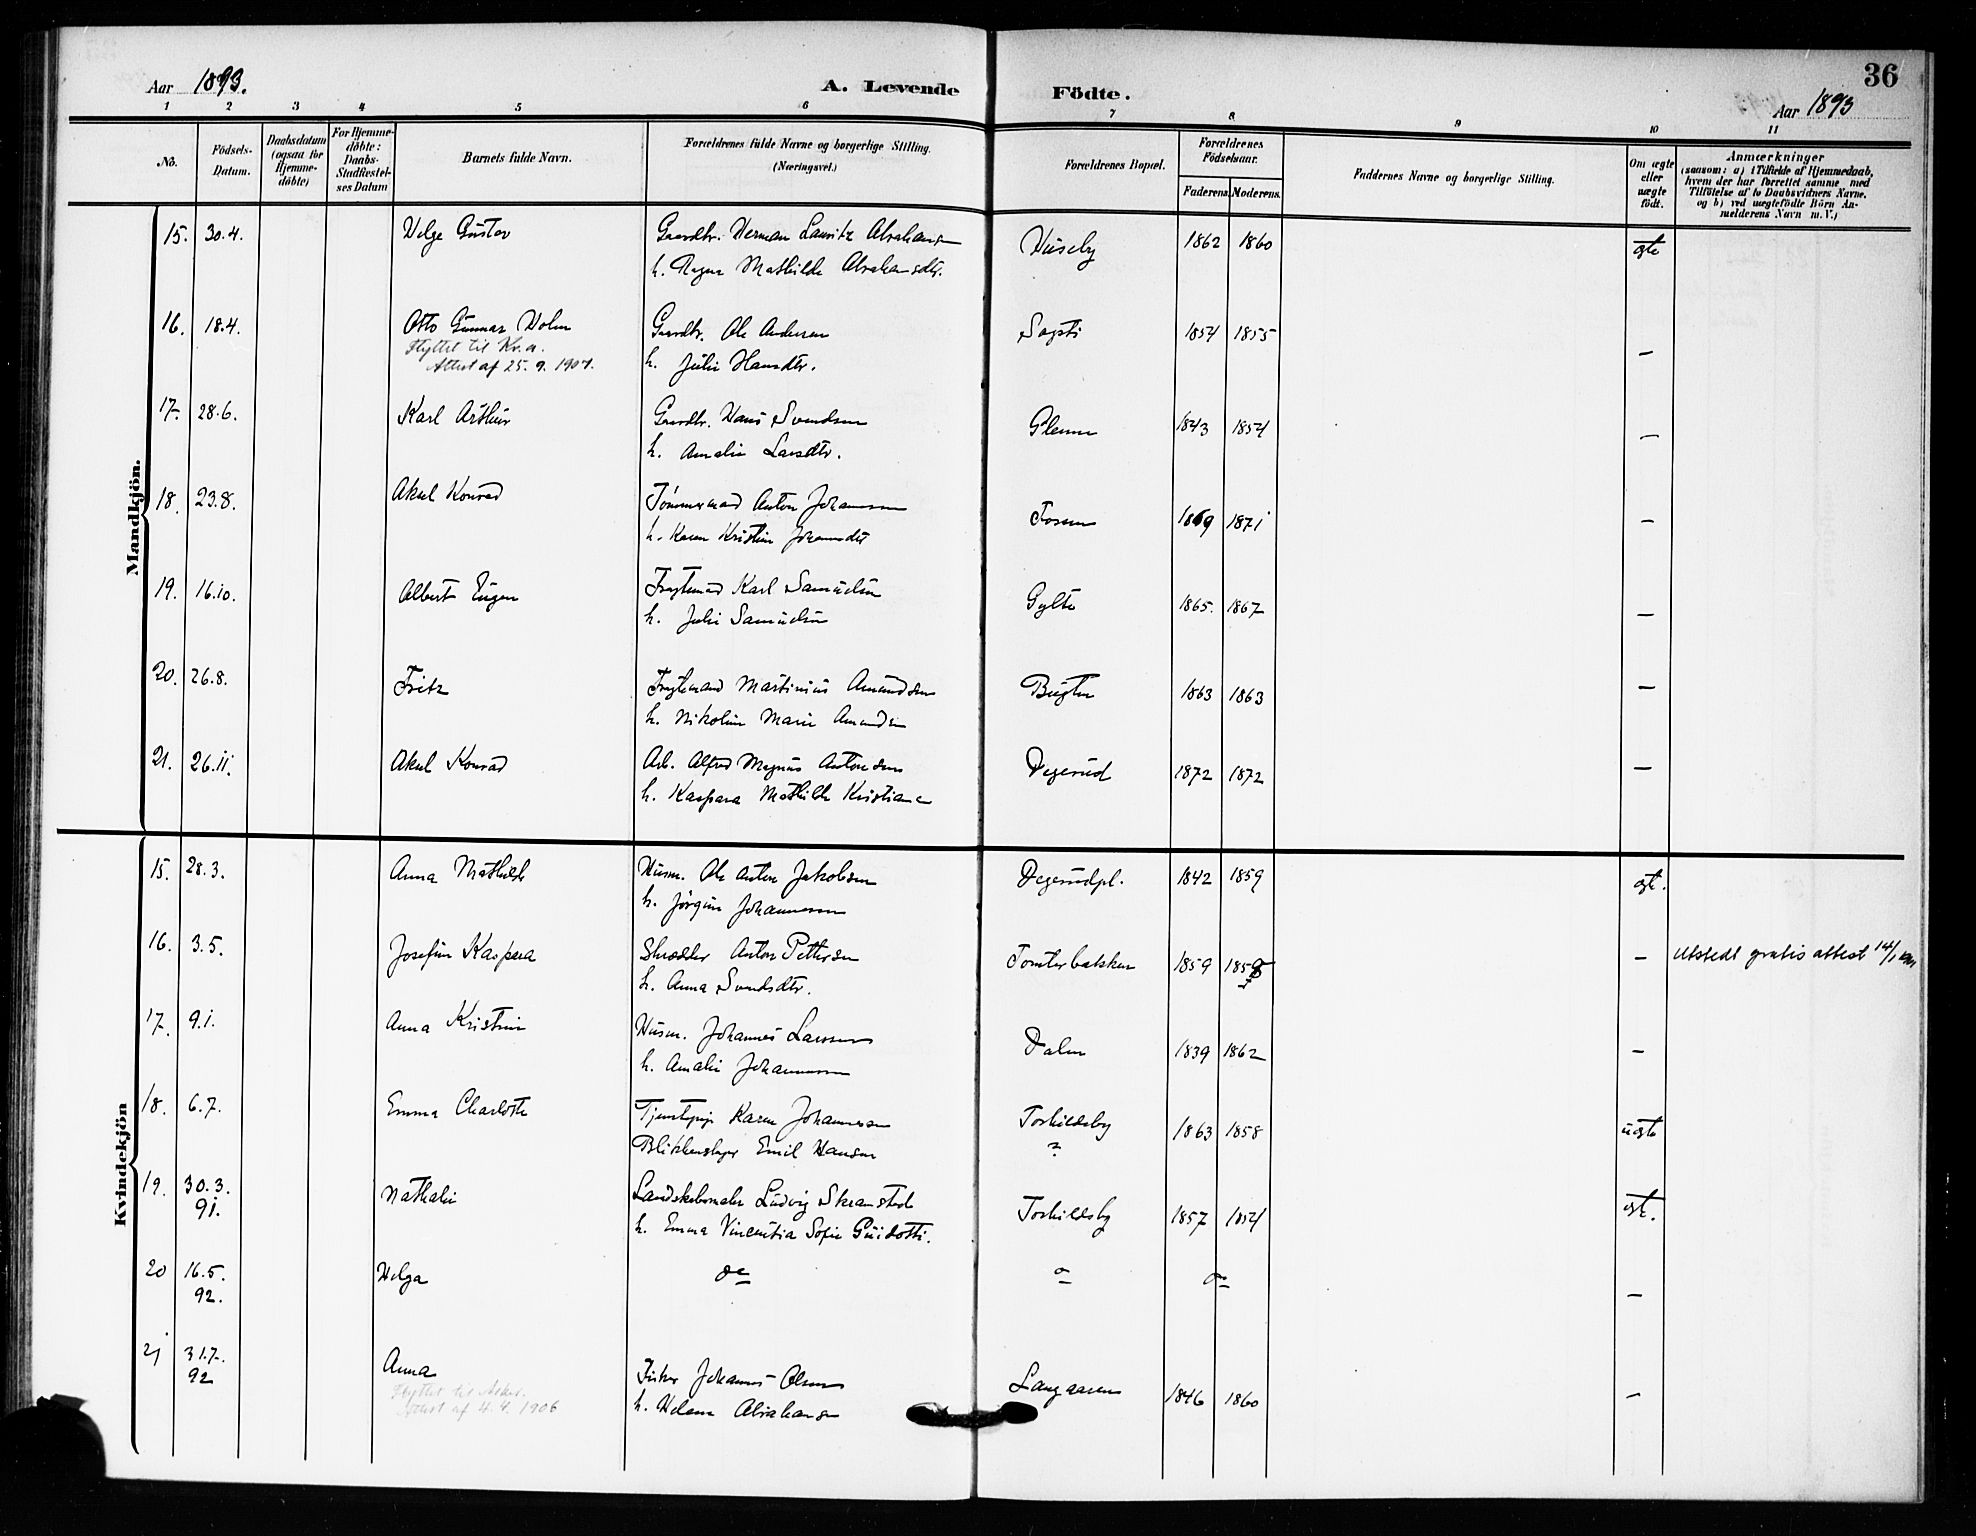 36
Aar 1893.
A. Levende Födte.
Aar 1893
1 2 3 4 5 6 7 8 9 10 11
No.
Födsels-Datum.
Daabsdatum (ogsaa for Hjemme-döbte)
For Hjemme-döbte: Daabs-Stadfæstel-ses Datum
Barnets fulde Navn.
Forældrenes fulde Navne og borgerlige Stilling. (Næringsvei.)
Forældrenes Bopæl.
Forældrenes Födselsaar.
Faderens. Moderens.
Faddernes Navne og borgerlige Stilling.
Om ægte eller uægte födt.
Anmærkninger
(saasom: a) i Tilfælde af Hjemmedaab, hvem der har forrettet samme med Tilföielse af to Daabsvidners Navne, og b) ved uægtefödte Börn An-melderens Navn m. V.)
Mandkjön.
15. 30.4. Helge Gustav Gaardbr. Herman Lauritz Abrahamsen Huseby 1862 1860 egte
h. Ragna Mathilde Abrahamsdtr.
16. 18.4. Otto Gunnar Holm Gaardbr. Ole Andersen 1854 1855 —
Flyttet til Kr.a. h. Julie Hansdtr.
Attest af 25. 9. 1907.
17. 28.6. Karl Arthur Gaardbr. Hans Svendsen Glenne 1843 1854 —
h. Amalie Larsdtr.
18. 23.8. Aksel Konrad Tømmermand Anton Johannessen Fossum 1869 1871 —
h. Karen Kristine Johannesdtr
19. 16.10. Albert Eugen Fragtemand Karl Samuelsen Gylte 1865. 1867 —
h. Julie Samuelsen
20. 26.8. Fritz Fragtemand Martinius Amundsen Bugten 1863 1863 —
h. Nikoline Marie Amundsen
21. 26.11. Aksel Konrad Arb. Alfred Magnus Antonsen Degerud 1872 1872 —
h. Kaspara Mathilde Kristiane
Kvindekjön
15. 28.3. Anna Mathilde Husm. Ole Anton Jakobsen Degerudpl. 1842 1859 egte.
h. Jørgine Johannessen
16. 3.5. Josefine Kaspara Skrædder Anton Pettersen Tomterbakken 1859 185 — Utstedt gratis attest 14/1
h. Anna Svendsdtr.
17. 9.1. Anna Kristine Husm. Johannes Larssen Dalen 1839 1862 —
h. Amalie Johannessen
18. 6.7. Emma Charlotte Tjenestepige Karen Johannessen Torkildsby 1863 1858 uegte
Blikkenslager Emil Hansen ?
19. 30.3. 91. Nathalie Landskabsmaler Ludvig Skramstad Torkildsby 1857 1854 egte.
h. Emma Vincentia Sofie Guidotti.
20 16.5. 92. Helga do do do —
21 31.7. 92 Anna Fisker Johannes Olsen Langaaren 1846 1860 —
Flyttet til Asker. h. Helene Abrahamsen
Attest af 4. 4. 1906